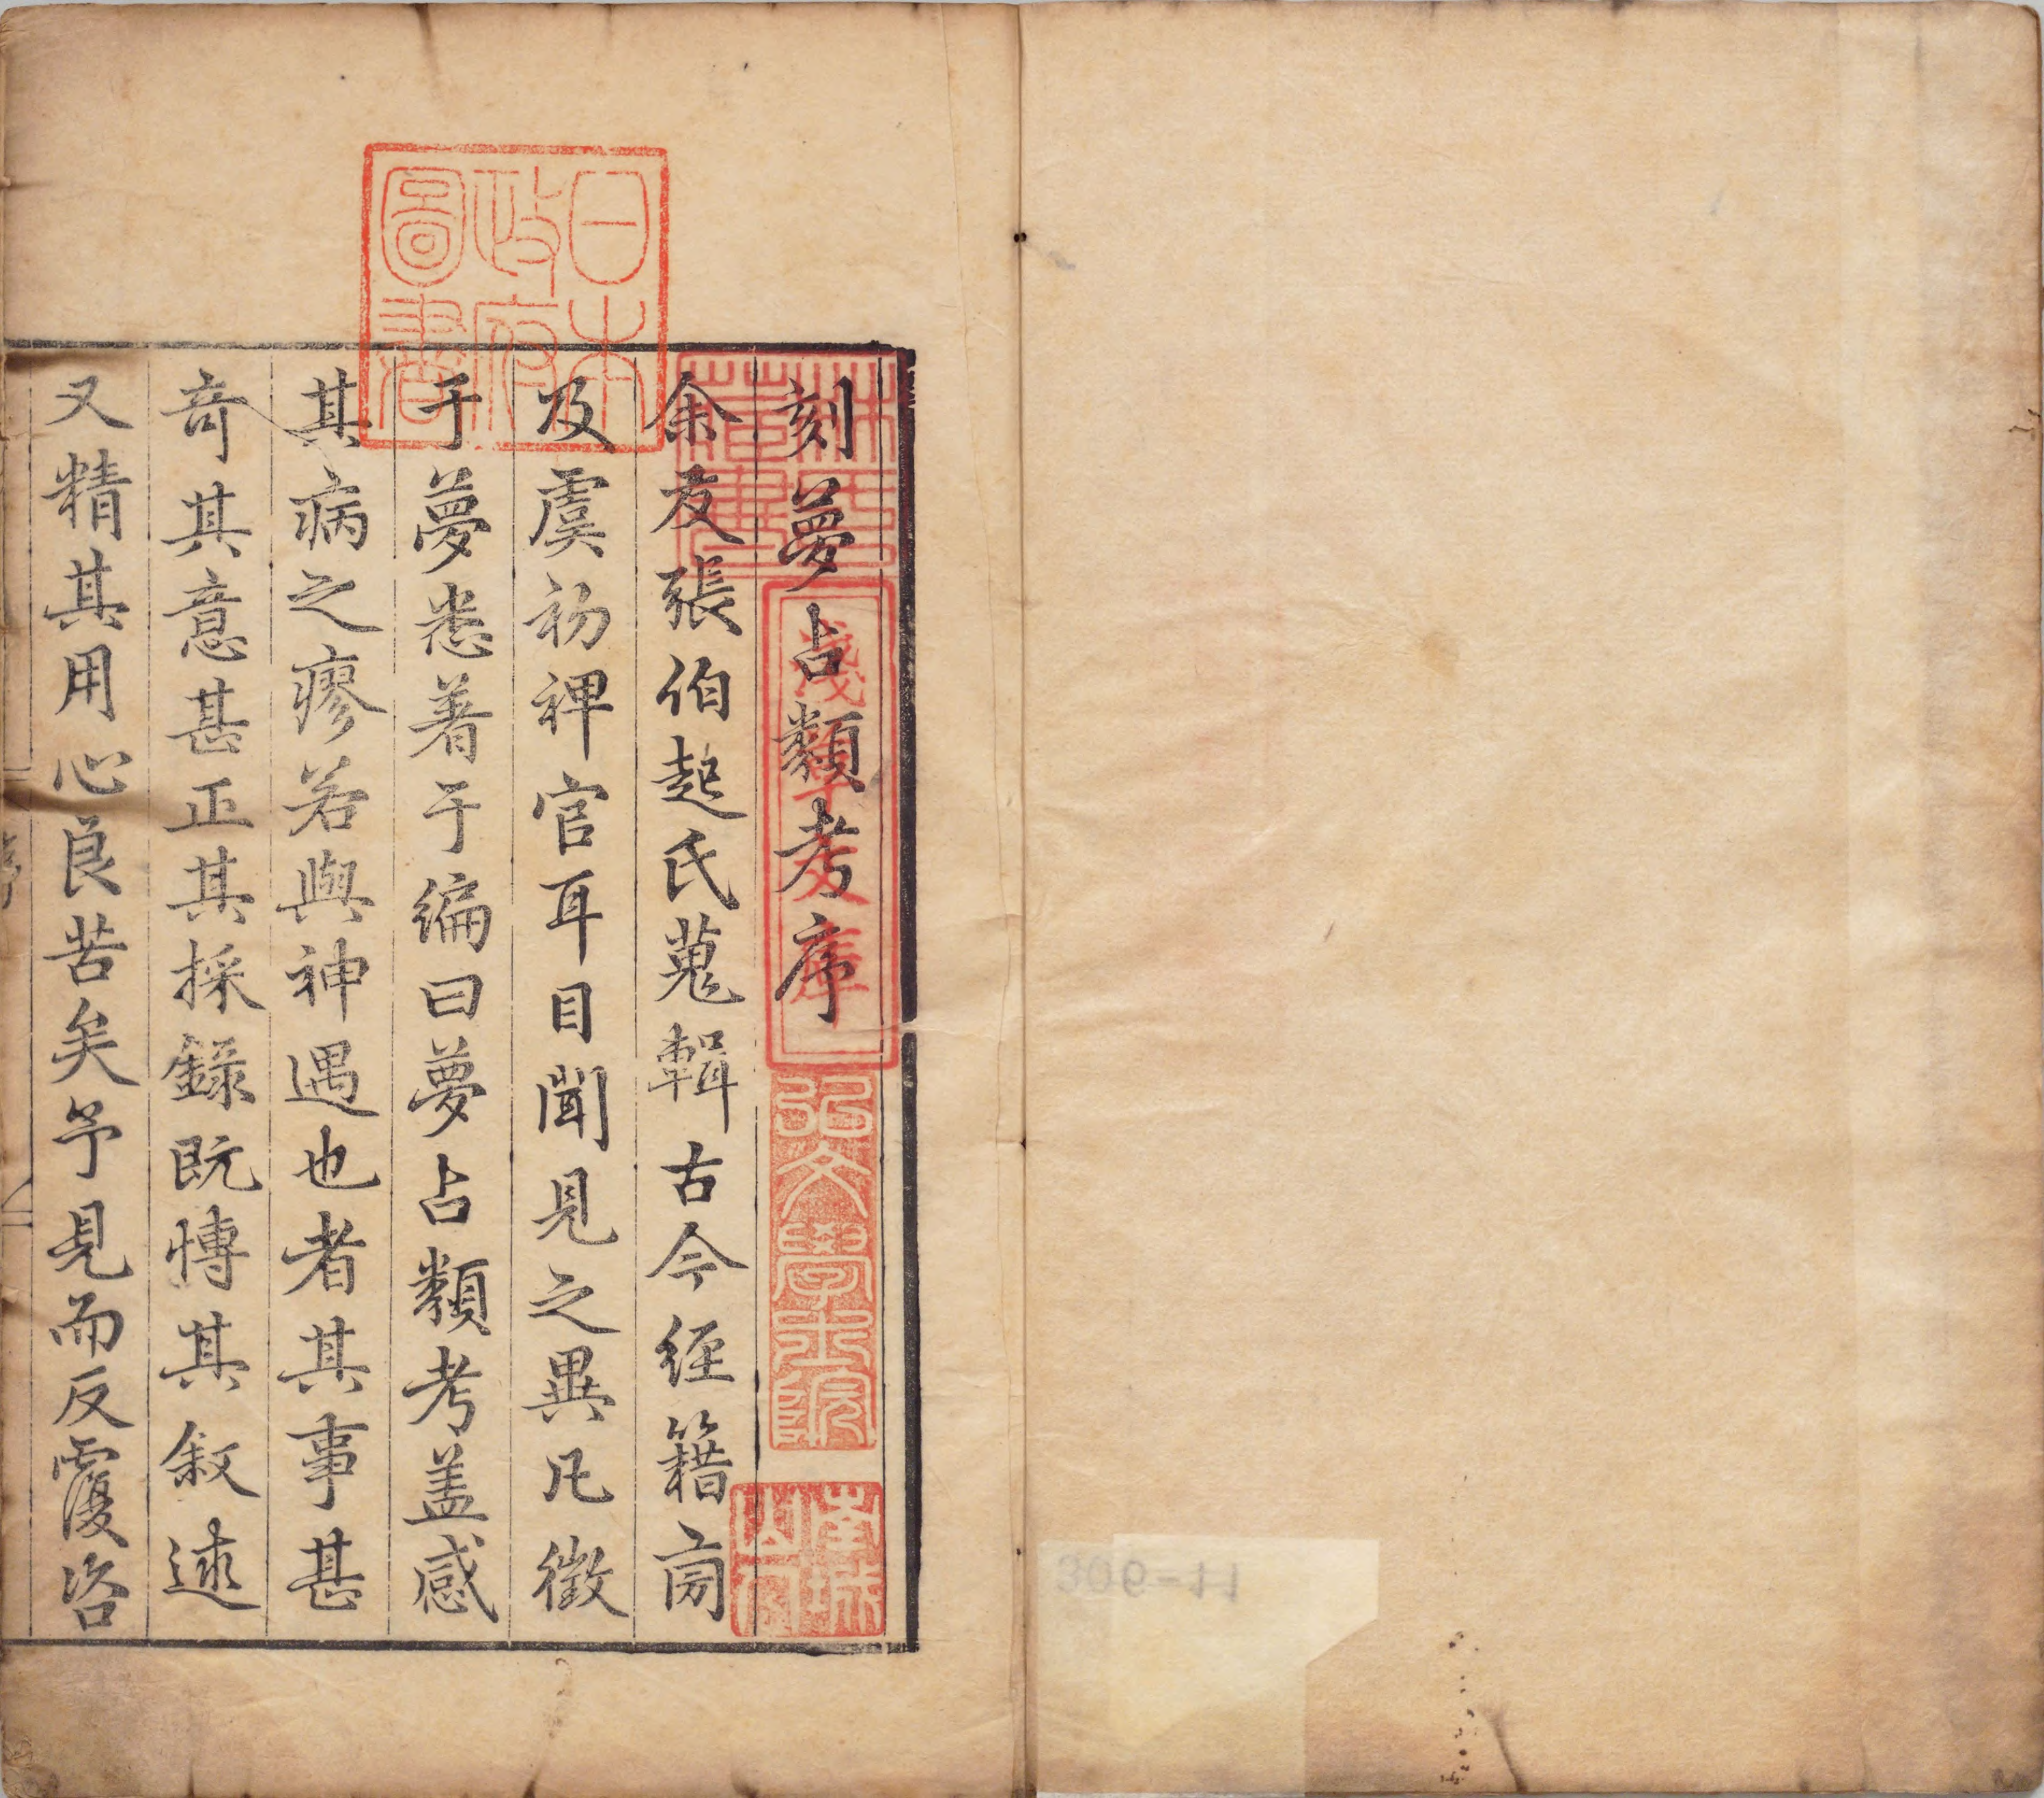 日本政府圖書
林氏藏書
淺草文庫
弘文學士院
刻夢占類考序
余友張伯起氏蒐輯古今経籍㫄
及虞初裨官耳目聞見之異凡徵
于夢悉著于編曰夢占類考盖感
其病之瘳若與神遇也者其事甚
奇其意甚正其採錄既愽其敘述
又精其用心良苦矣予見而反覆咨